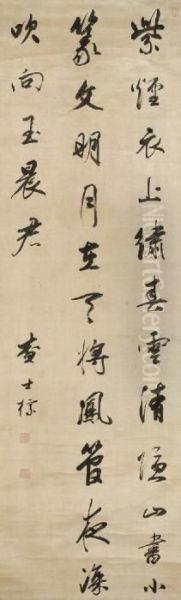 紫煙衣上繡春雲清隱山書小
篆文明月在天將鳳管夜深
吹向玉晨君
查士標